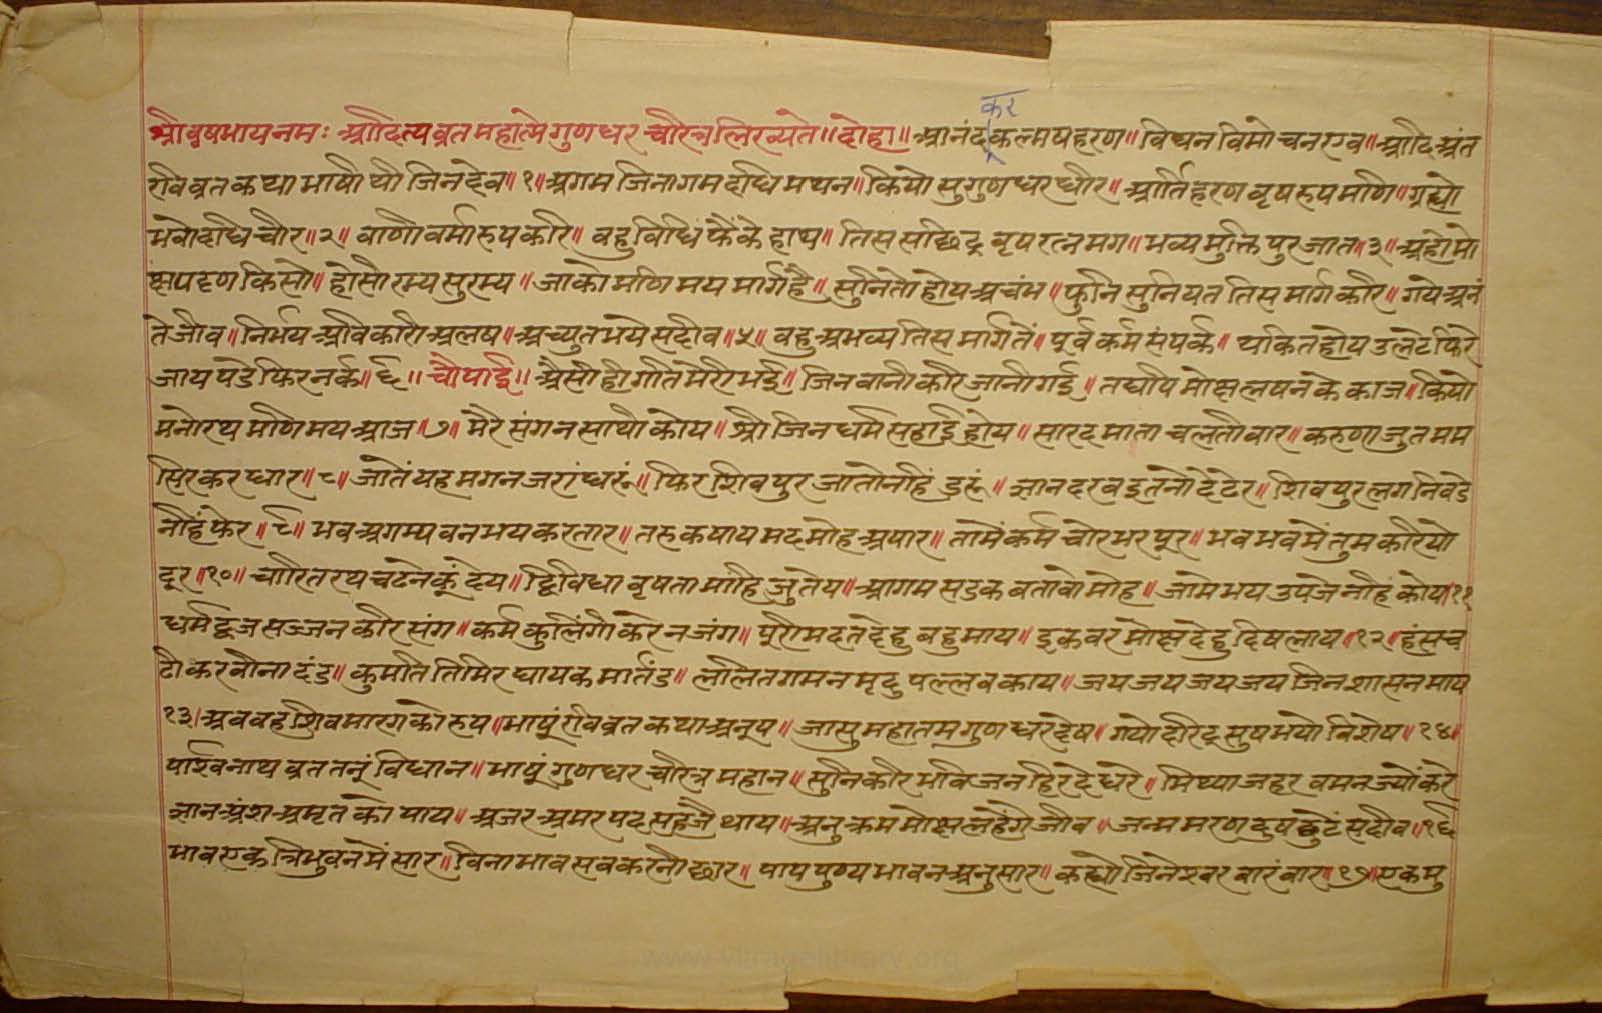 कर
श्रीवृषभायनमः श्रादित्यव्रतमहात्मे गुणधर चरित्र लिख्यते॥ दोहा॥ आनंद कल्मषहरण॥ विघन विमोचन एव॥ आदि अंत
रविव्रत कथा भाषी यौ जिनदेव॥१॥ अगम जिनागम दधि मथन॥ कियो सुगुणधर धीर॥ आर्तिहरण वृषरुप मणि॥ ग्रह्यो
भवोदधि चीर॥२॥ वाणी वर्मारुप करि॥ वहु विधि फैंके हाथ॥ तिस सछिद्र वृषरत्न मग॥ भव्य मुक्ति पुर जात॥३॥ अहो मो
क्षपट्टण किसो॥ होसी रम्य सुरम्य॥ जाको मणिमय मार्ग है॥ सुनितो होय अचंभ॥ फुनि सुनियत तिस मार्ग करि॥ गये अनं
ते जीव॥ निर्भय अविकारी अलष॥ अच्युत भये सदीव॥५॥ वहु अभव्य तिस मार्ग तें॥ पूर्व कर्म संपर्क॥ थकित होय उलटे फिरे
जाय पडे फिर नर्क॥६॥ चौपाई॥ असी ही गति मेरी भई॥ जिनवानी करि जानी गई॥ तद्यपि मोक्ष लषन के काज॥ कियो
मनोरथ मणिमय आज॥७॥ मेरै संग न साथी कोय॥ श्री जिनधर्म सहाई होय॥ सारद माता चलती वार॥ करुणा जुत मम
सिर कर धार॥८॥ जातें यह मग नजरां धरूं॥ फिर शिवपुर जातो नहिं डरूं॥ ज्ञान दरव इतनो दे टेर॥ शिवपुर लग निवडे
नहिं फेर॥९॥ भव अगम्य वन भय करतार॥ तरु कषाय मद मोह अपार॥ तामें कर्म चोर भरपूर॥ भव भव में तुम करियो
दूर॥१०॥ चारित रथ चटने कूं देय॥ द्विविधा वृषता माहि जुतेय॥ आगम सडक बतावो मोह॥ जामे भय उपजे नहिं कोय॥११
धर्मद्वज सज्जन करि संग॥ कर्म कुलिंगी करे न जंग॥ पूरी मदत देहु बहु माय॥ इक वर मोक्ष देहु दिषलाय॥१२॥ हंस च
टी कर वीना दंड॥ कुमति तिमिर घायक मार्तंड॥ ललित गमन मृदु पल्लव काय॥ जय जय जय जय जिनशासन माय
१३॥ अव वह शिव मारग को रुप॥ भाषूं रविव्रत कथा अनूप॥ जासु महातम गुणधर देष॥ गयो दरिद्र सुष भयो विशेष॥१४॥
पार्श्वनाथ व्रत तनूं विधान॥ भाषूं गुणधर चरित्र महान॥ सुनि करि भविजन हिरदे धरे॥ मिथ्या जहर वमन ज्यों करे
ज्ञान अंश अमृत को पाय॥ अजर अमर पद सहजै थाय॥ अनुक्रम मोक्ष लहेंगे जीव॥ जन्म मरण दुष छुटें सदीव॥१६
भाव एक त्रिभुवन में सार॥ विना भाव सव करनी छार॥ पाप पुण्य भावन अनुसार॥ कह्यो जिनेश्वर वारंवार॥१७॥ एक मु